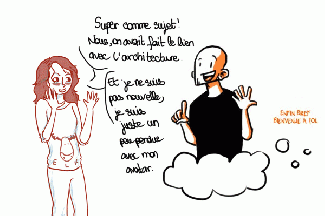 Super comme sujet!
Nous, on avait fait le lien
avec l'architecture
Et je ne suis
pas nouvelle,
je suis
juste un
peu perdue
avec mon
avatar.
ENFIN BREF
BIENVENUE À TOI